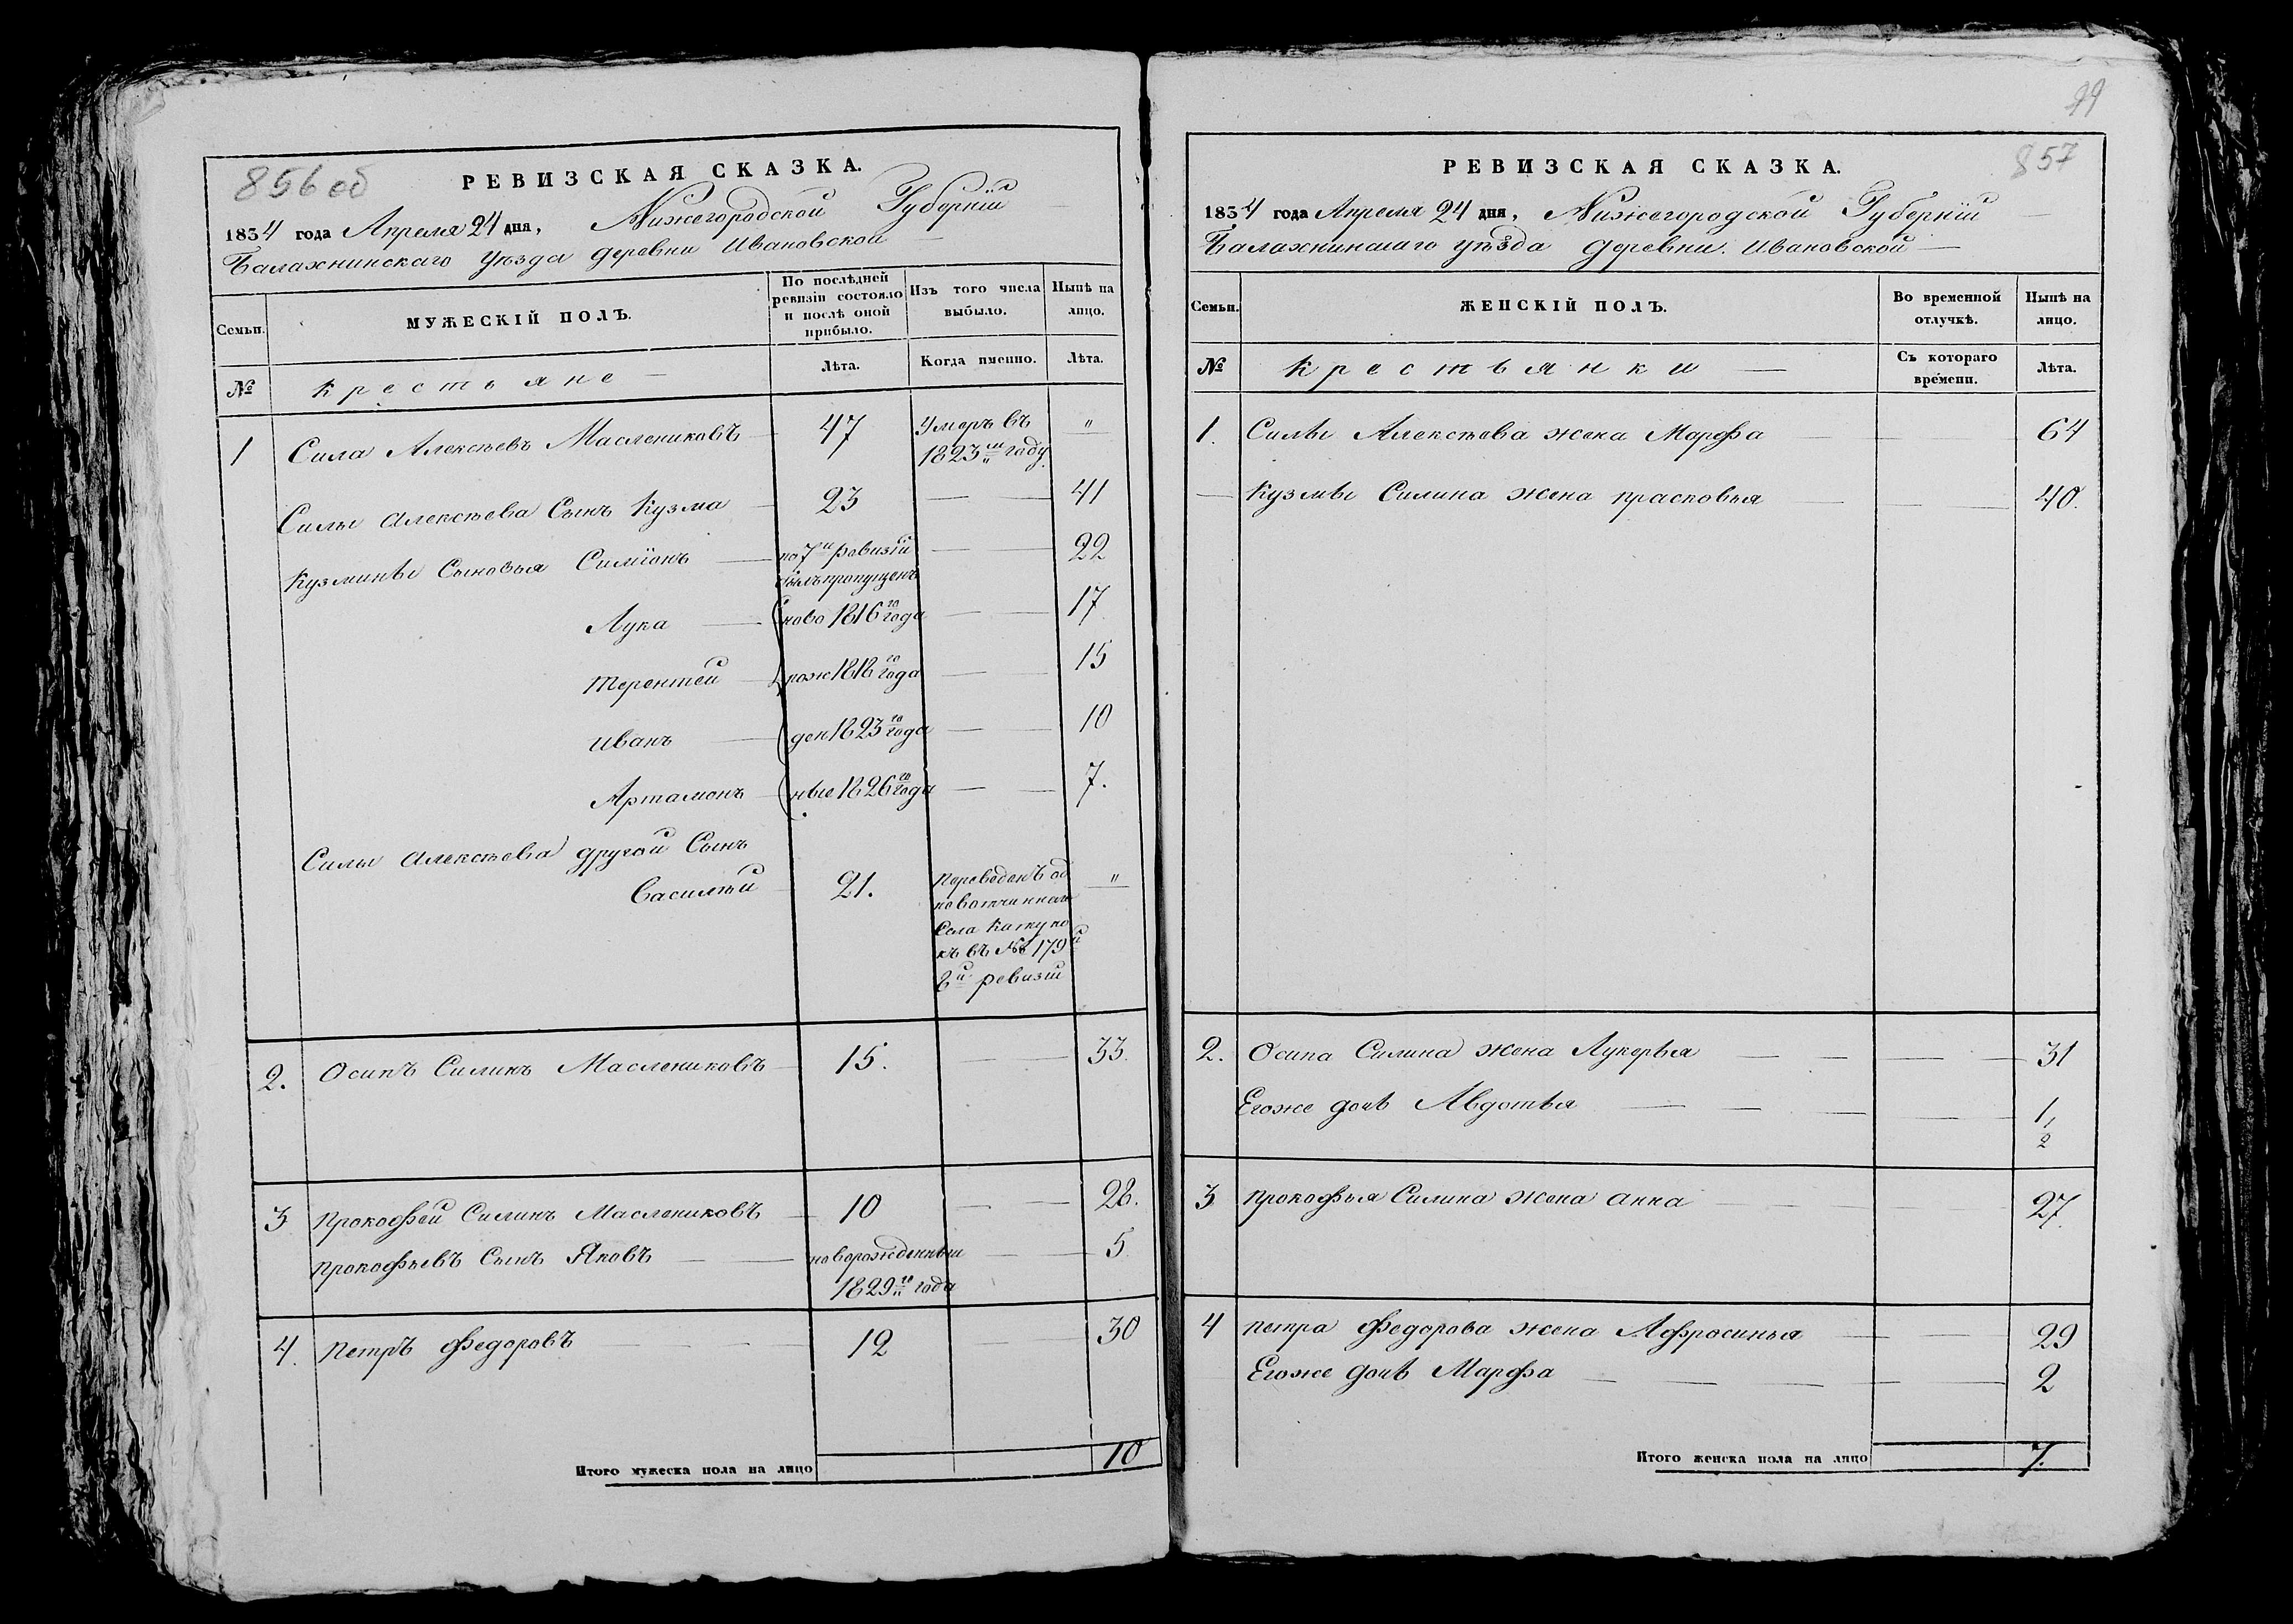 856 об
РЕВИЗСКАЯ СКАЗКА.
1834 года Апреля 24 дня, Нижегородской Губернiи
Балахнинскаго уѣзда деревни Ивановской
Семьи.
МУЖЕСКІЙ ПОЛЪ.
По послѣдней ревизіи состояло и послѣ оной прибыло.
Изъ того числа выбыло.
Нынѣ на лицо.
№
Крестьяне
Лѣта.
Когда именно.
Лѣта.
1 Сила Алексѣевъ Маслениковъ 47 Умеръ въ "
1823 м году.
Силы Алексѣева Сынъ Кузма 23 41
Кузмины Сыновья Симіонъ по 7 й ревизіи 22
былъ пропущенъ
Лука ново 1816 го года 17
Терентей рож 1818 го года 15
Иванъ ден 1823 го года 10
Артамонъ ные 1826 го года 7.
Силы Алексѣева другой Сынъ
Василѣй 21. Переведенъ од "
новотчинном
Села Катуно
къ въ № 179 й
8 й ревизіи
2. Осипъ Силинъ Маслениковъ 15. 33.
3 Прокофей Силинъ Маслениковъ 10 28.
Прокофьевъ Сынъ Яковъ новорожденный 5
1829 го года
4. Петръ Федоровъ 12 30
Итого мужеска пола на лицо 10
99
857
РЕВИЗСКАЯ СКАЗКА.
1834 года Апреля 24 дня, Нижегородской Губернiи
Балахнинскаго уѣзда деревни. Ивановской
Семьи.
ЖЕНСКІЙ ПОЛЪ.
Во временной отлучкѣ.
Нынѣ на лицо.
№
Крестьянки
Съ котораго времени.
Лѣта.
1. Силы Алексѣева жена Марфа 64
Кузмы Силина жена прасковья 40.
2. Осипа Силина жена Лукерья 31
Егоже дочь Авдотья 1/2
3 Прокофья Силина жена Анна 27.
4 Петра Федорова жена Афросинья 29
Егоже дочь Марфа 2
Итого женска пола на лицо 7.